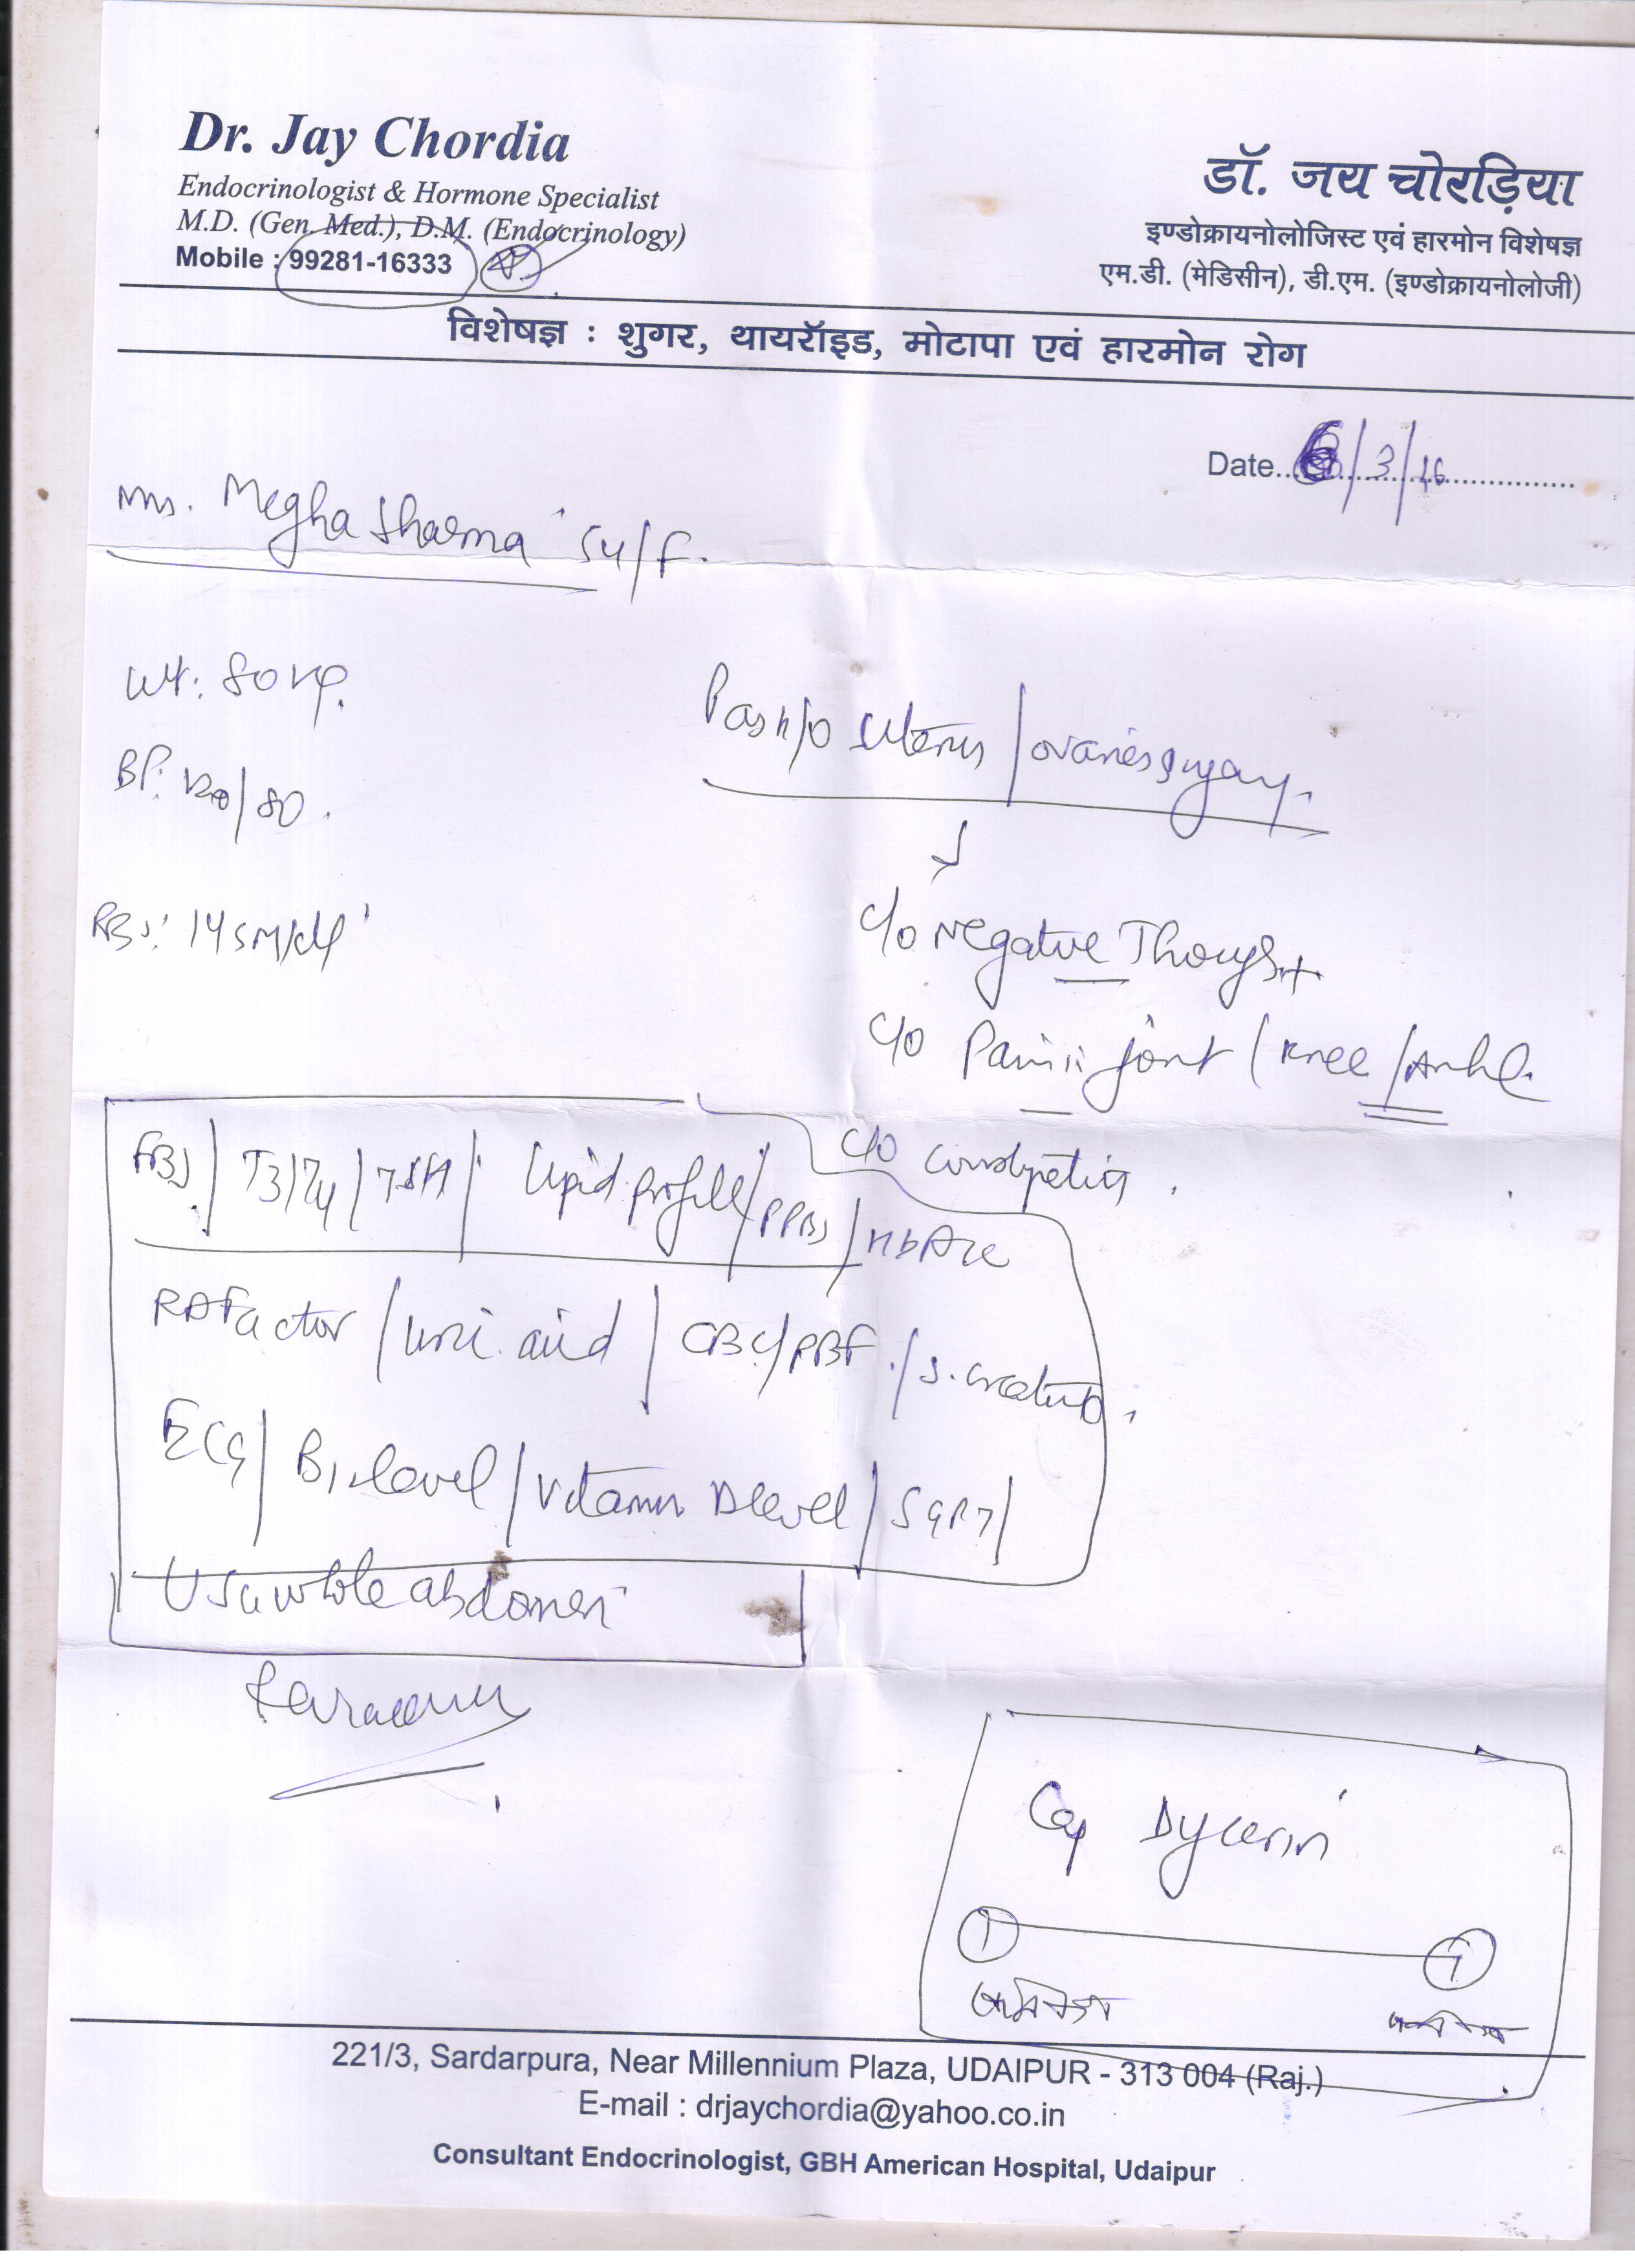 Dr. Jay Chordia
Endocrinologist & Hormone Specialist
M.D. (Gen. Med.), D.M. (Endocrinology)
Mobile : 99281-16333
डॉ. जय चोरड़िया
इण्डोक्रायनोलोजिस्ट एवं हारमोन विशेषज्ञ
एम.डी. (मेडिसीन), डी.एम. (इण्डोक्रायनोलोजी)
विशेषज्ञ : शुगर, थायरॉइड, मोटापा एवं हारमोन रोग
Date..6/3/16
Mrs. Megha Sharma 54/F.
Wt: 80 kg.
BP: 120/80.
RBS: 145 M/dl
Past h/o Uterus / ovaries
c/o Negative Thougs +
c/o Pain in joint ( Knee / Ankl.
c/o constipatin.
FBS / T3/T4/TSH / Lipid profile / PPBS / HbA1c
RA Factor / Uric acid / CBC/PBF. / S. creatin.
ECG / B12 level / Vitamin D level / SGPT /
USG whole abdomen
Cap Dycerin
1 1
221/3, Sardarpura, Near Millennium Plaza, UDAIPUR - 313 004 (Raj.)
E-mail : drjaychordia@yahoo.co.in
Consultant Endocrinologist, GBH American Hospital, Udaipur